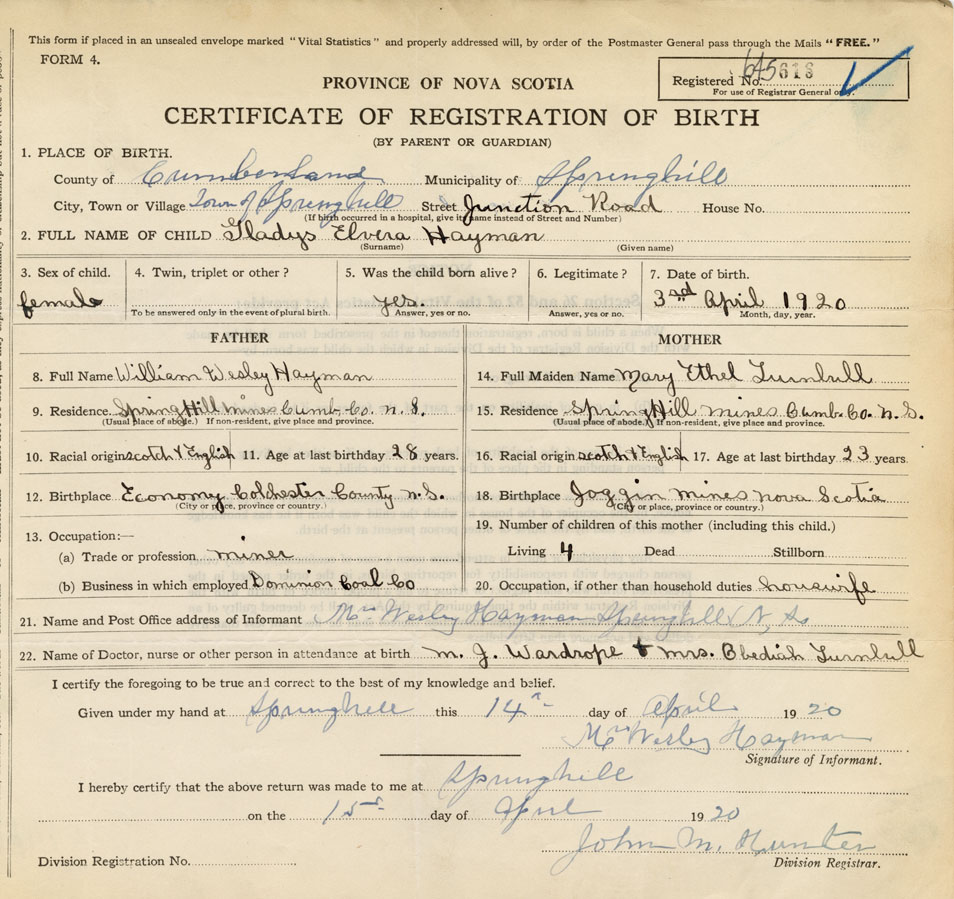 This form if placed in an unsealed envelope marked "Vital Statistics" and properly addressed will, by order of the Postmaster General pass through the Mails "FREE."
FORM 4.
Registered No. 645618
For use of Registrar General only.
PROVINCE OF NOVA SCOTIA
CERTIFICATE OF REGISTRATION OF BIRTH
(BY PARENT OR GUARDIAN)
1. PLACE OF BIRTH.
County of Cumberland Municipality of Springhill
City, Town or Village Town of Springhill Street Junction Road House No.
(If birth occurred in a hospital, give its name instead of Street and Number)
2. FULL NAME OF CHILD Gladys Elvera Hayman
(Surname) (Given name)
3. Sex of child. 4. Twin, triplet or other? 5. Was the child born alive? 6. Legitimate? 7. Date of birth.
female yes. 3rd April 1920
To be answered only in the event of plural birth. Answer, yes or no. Answer, yes or no. Month, day, year.
FATHER MOTHER
8. Full Name William Wesley Hayman 14. Full Maiden Name Mary Ethel Turnbull
9. Residence. SpringHill mines Cumb. Co. n. S. 15. Residence SpringHill mines Cumb. Co. n. S.
(Usual place of abode.) If non-resident, give place and province. (Usual place of abode.) If non-resident, give place and province.
10. Racial origin scotch & English 11. Age at last birthday 28 years. 16. Racial origin scotch & English 17. Age at last birthday 23 years.
12. Birthplace Economy Colchester County n. S. 18. Birthplace Joggin mines nova Scotia
(City or place, province or country.) (City or place, province or country.)
13. Occupation:— 19. Number of children of this mother (including this child.)
(a) Trade or profession miner Living 4 Dead Stillborn
(b) Business in which employed Dominion Coal Co 20. Occupation, if other than household duties housewife
21. Name and Post Office address of Informant Mrs Wesley Hayman Springhill N. S.
22. Name of Doctor, nurse or other person in attendance at birth m. J. Wardrope & mrs. Obediah Turnbull
I certify the foregoing to be true and correct to the best of my knowledge and belief.
Given under my hand at Springhill this 14th day of April 1920
Mrs Wesley Hayman
Signature of Informant.
I hereby certify that the above return was made to me at Springhill
on the 15th day of April 1920
John M. Hunter
Division Registration No. Division Registrar.